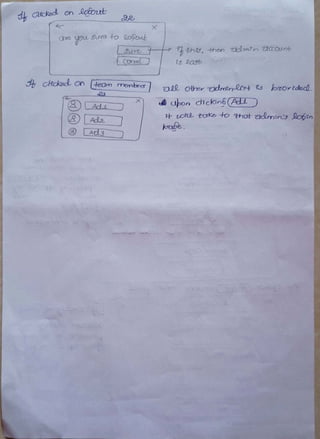 If clicked on logout
←
×
are you sure to logout
Sure
If sure, then admin account
is
Cancel
If clicked on team members
all other admin list is provided.
←
×
Ad1
upon clicking Ad1
Ad2
it will take to that admin's login
Ad3
page.